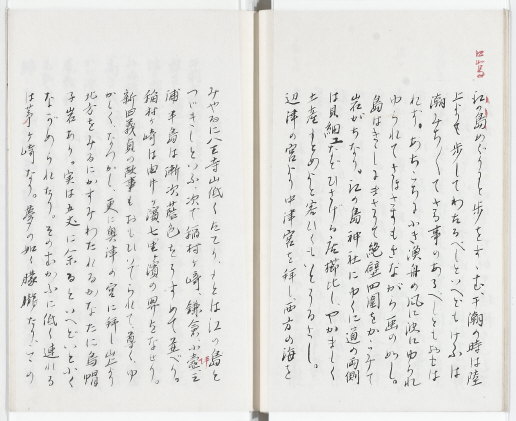 江島
江の島めぐりと歩をすゝむ 干潮の時は陸
上よりも歩してわたるべしといへどもけふは
潮みち〳〵てさる事のあるべしともおもは
れず。あちこちにうき漁舟の風に波にゆられ
ゆられてさながら画の如し。
島は絶壁四囲をかこみて
岩がちなり。江の島神社にゆくに道の両側
は貝細工などひさげる店櫛比し、やかましく
土産もとめよといとうるさし。
辺津の宮より中津宮を拝し、西方の海を
みやるに八王寺山低くたてり。もとは江の島と
つゞきしといふ。次で稲村ヶ崎、鎌倉、小壺、三
浦半島は漸次藍色をうすめて並べり。
稲村ヶ崎は由井ヶ濱七里ヶ濱の界をなせり。
新田義貞の故事もおもひいでられて尊く、ゆ
かしくなつかし。更に奥津の宮に拝し、山上より
北方をみるにかすみわたれるかなたに烏帽
子岩あり。実は五丈に余るといへどいと小く
ながめられたり。そのおかに低く連れる
は茅ヶ崎なり。夢の如く朦朧たり。この